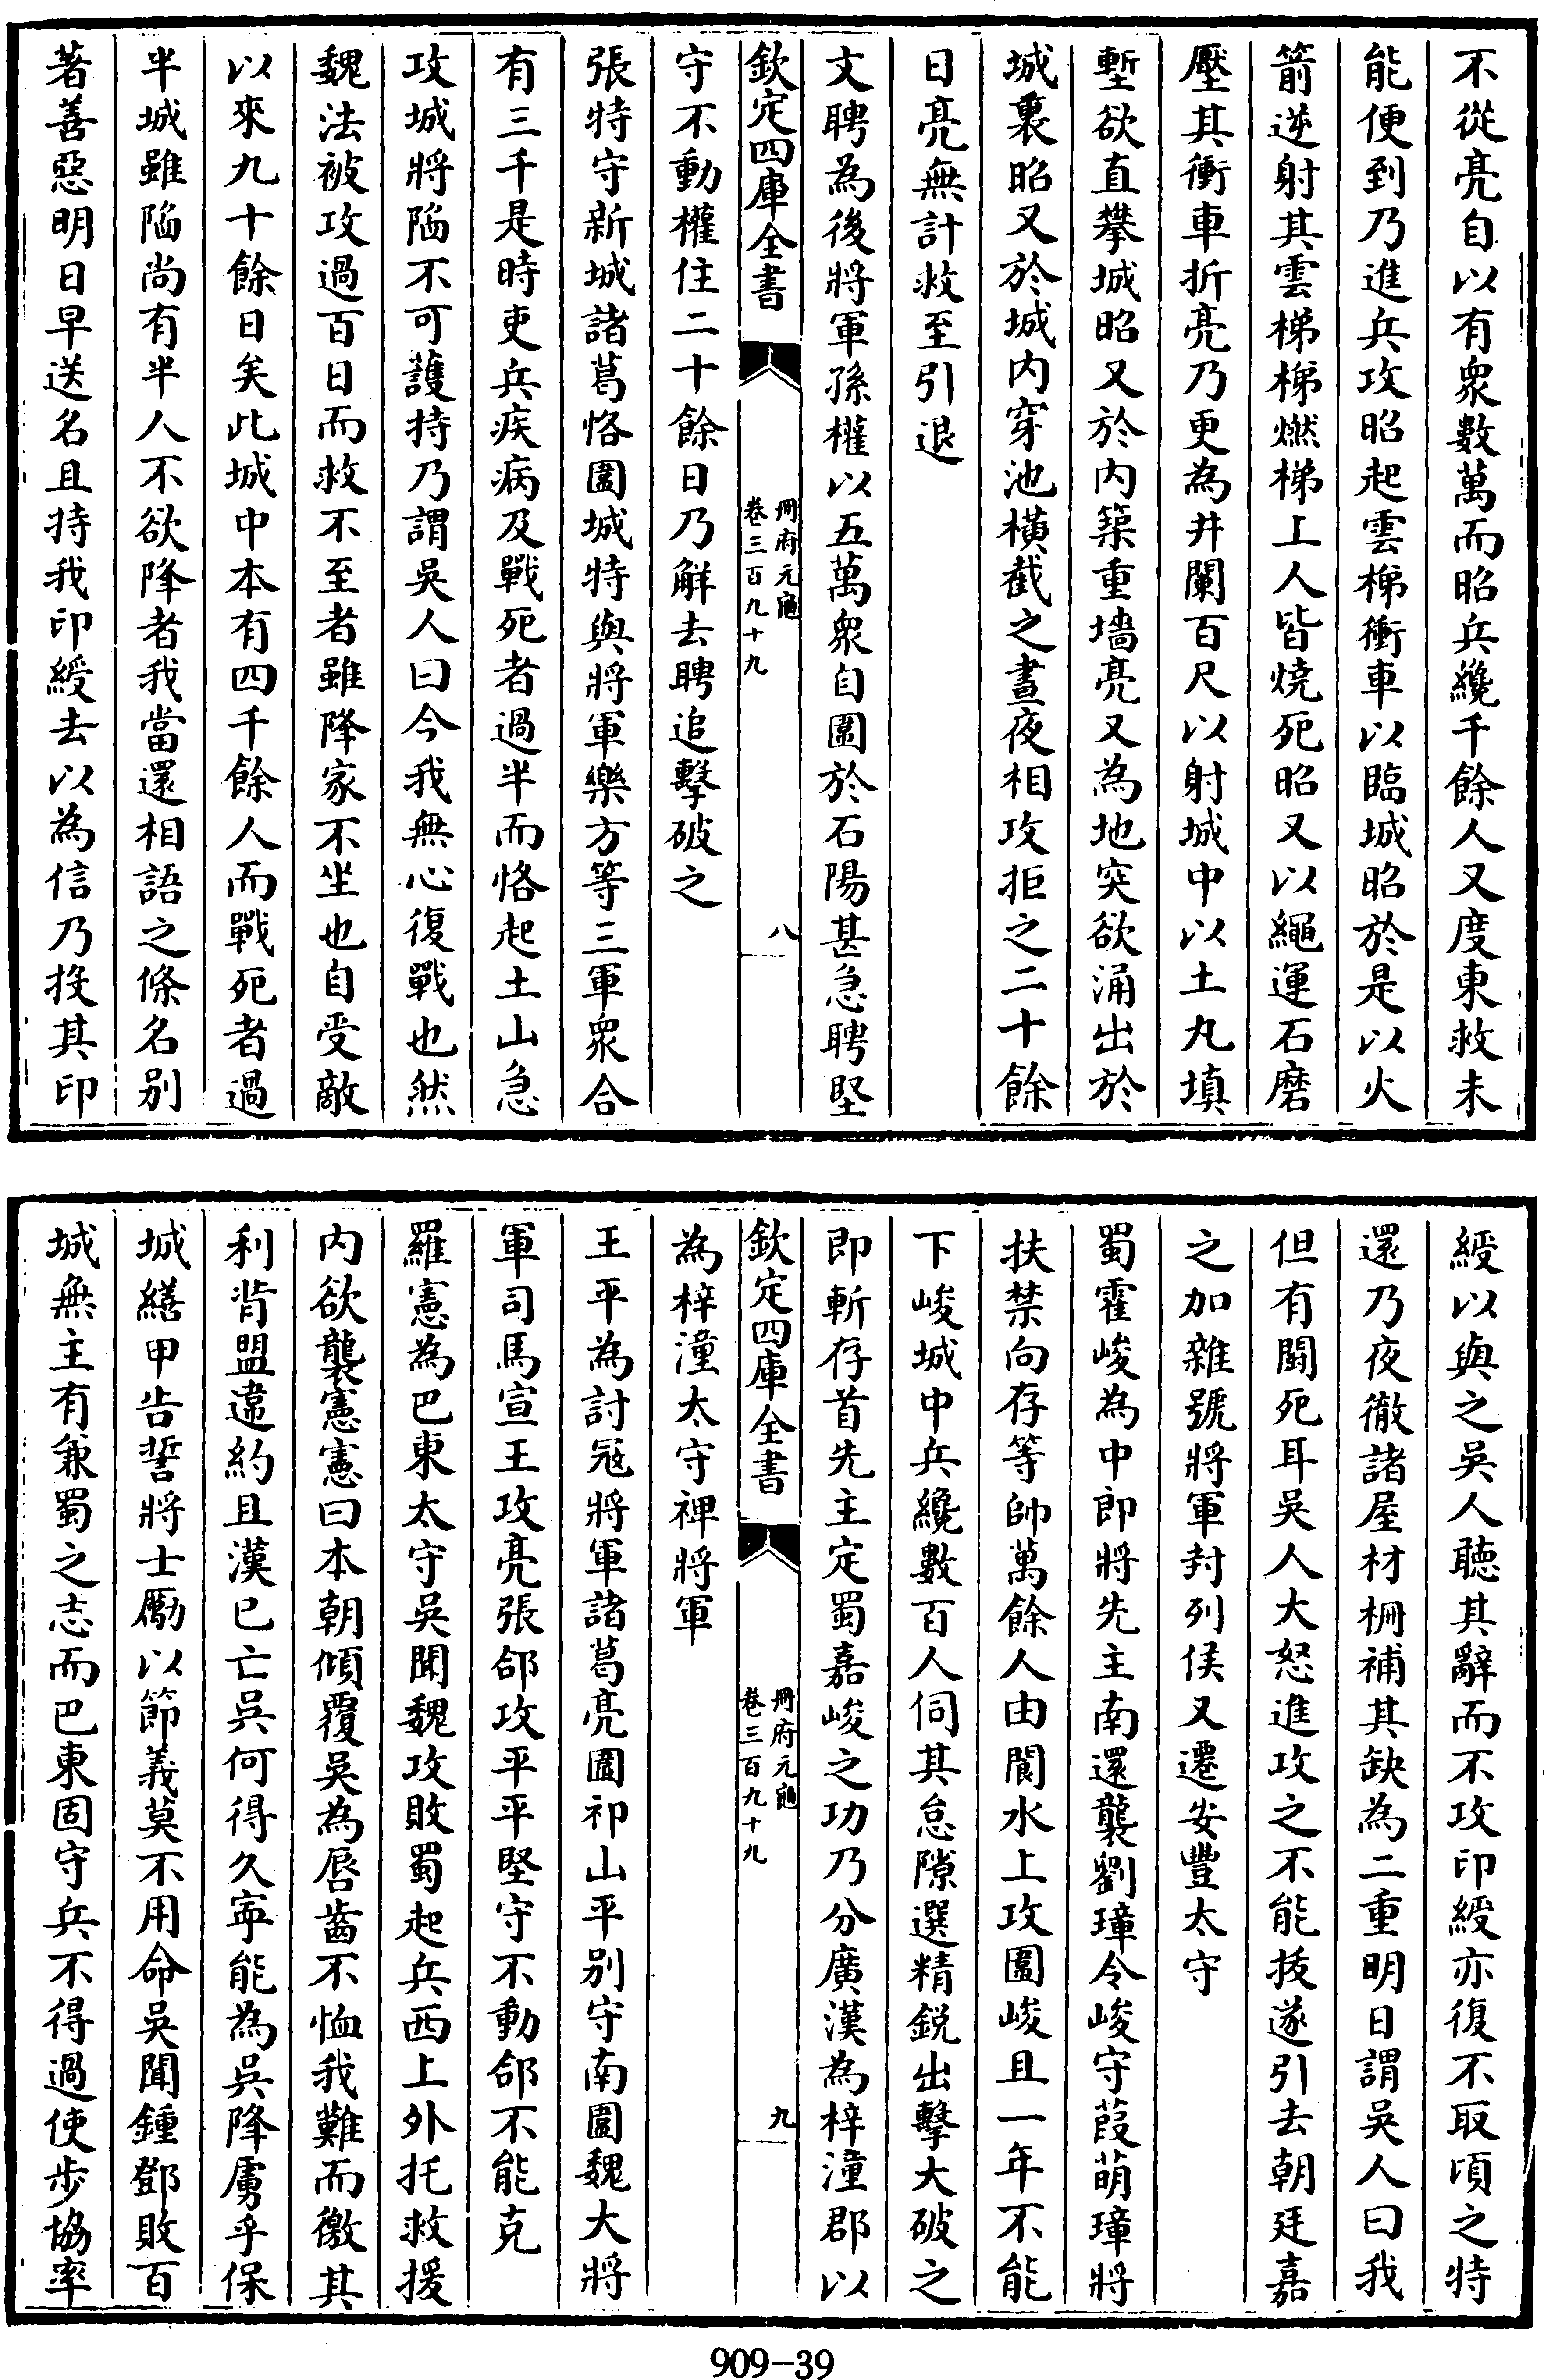 不從亮自以有衆數萬而昭兵纔千餘人又度東救未
能便到乃進兵攻昭起雲梯衝車以臨城昭於是以火
箭逆射其雲梯梯燃梯上人皆燒死昭又以繩運石磨
壓其衝車折亮乃更為井闌百尺以射城中以土丸填
塹欲直攀城昭又於內築重墻亮又為地突欲涌出於
城裏昭又於城內穿池橫截之晝夜相攻拒之二十餘
日亮無計救至引退
文聘為後將軍孫權以五萬衆自圍於石陽甚急聘堅
欽定四庫全書
冊府元龜
卷三百九十九
八
守不動權住二十餘日乃解去聘追擊破之
張特守新城諸葛恪圍城特與將軍樂方等三軍衆合
有三千是時吏兵疾病及戰死者過半而恪起土山急
攻城將陷不可護持乃謂吳人曰今我無心復戰也然
魏法被攻過百日而救不至者雖降家不坐也自受敵
以來九十餘日矣此城中本有四千餘人而戰死者過
半城雖陷尚有半人不欲降者我當還相語之條名别
著善惡明日早送名且持我印綬去以為信乃投其印
綬以與之吳人聽其辭而不攻印綬亦復不取頃之特
還乃夜徹諸屋材柵補其缺為二重明日謂吳人曰我
但有鬭死耳吳人大怒進攻之不能拔遂引去朝廷嘉
之加雜號將軍封列侯又遷安豐太守
蜀霍峻為中郎將先主南還襲劉璋令峻守葭萌璋將
扶禁向存等帥萬餘人由閬水上攻圍峻且一年不能
下峻城中兵纔數百人伺其怠隙選精鋭出擊大破之
即斬存首先主定蜀嘉峻之功乃分廣漢為梓潼郡以
欽定四庫全書
冊府元龜
卷三百九十九
九
為梓潼太守禆將軍
王平為討冦將軍諸葛亮圍祁山平别守南圍魏大將
軍司馬宣王攻亮張郃攻平平堅守不動郃不能克
羅憲為巴東太守吳聞魏攻敗蜀起兵西上外托救援
内欲襲憲憲曰本朝傾覆吳為唇齒不恤我難而徼其
利背盟違約且漢已亡吳何得久寧能為吳降虜乎保
城繕甲告誓將士勵以節義莫不用命吳聞鍾鄧敗百
城無主有兼蜀之志而巴東固守兵不得過使步協率
909-39